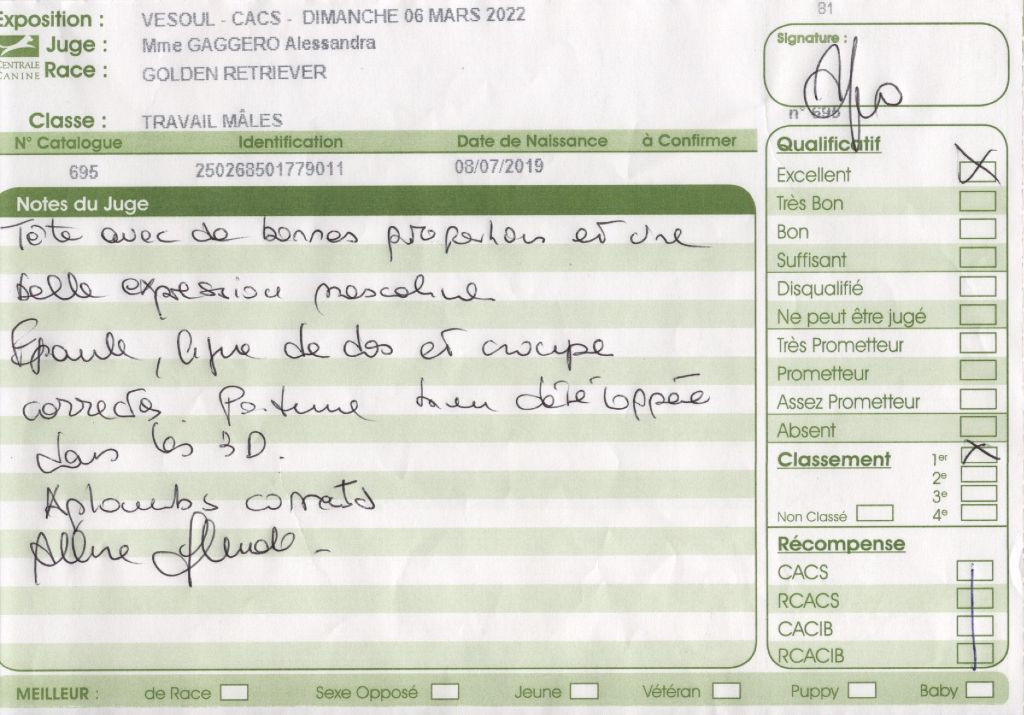 81
Exposition : VESOUL - CACS - DIMANCHE 06 MARS 2022
CENTRALE CANINE
Juge : Mme GAGGERO Alessandra
Race : GOLDEN RETRIEVER
Classe : TRAVAIL MÂLES
Signature :
n° 695
N° Catalogue Identification Date de Naissance à Confirmer
695 250268501779011 08/07/2019
Notes du Juge
Tête avec de bonnes proportions et une
belle expression masculine
Epaule, ligne de dos et croupe
correctes Poitrine bien développée
dans les 3D.
Aplombs corrects
Allure
Qualificatif
Excellent
Très Bon
Bon
Suffisant
Disqualifié
Ne peut être jugé
Très Prometteur
Prometteur
Assez Prometteur
Absent
Classement 1er
2e
3e
Non Classé 4e
Récompense
CACS
RCACS
CACIB
RCACIB
MEILLEUR : de Race Sexe Opposé Jeune Vétéran Puppy Baby